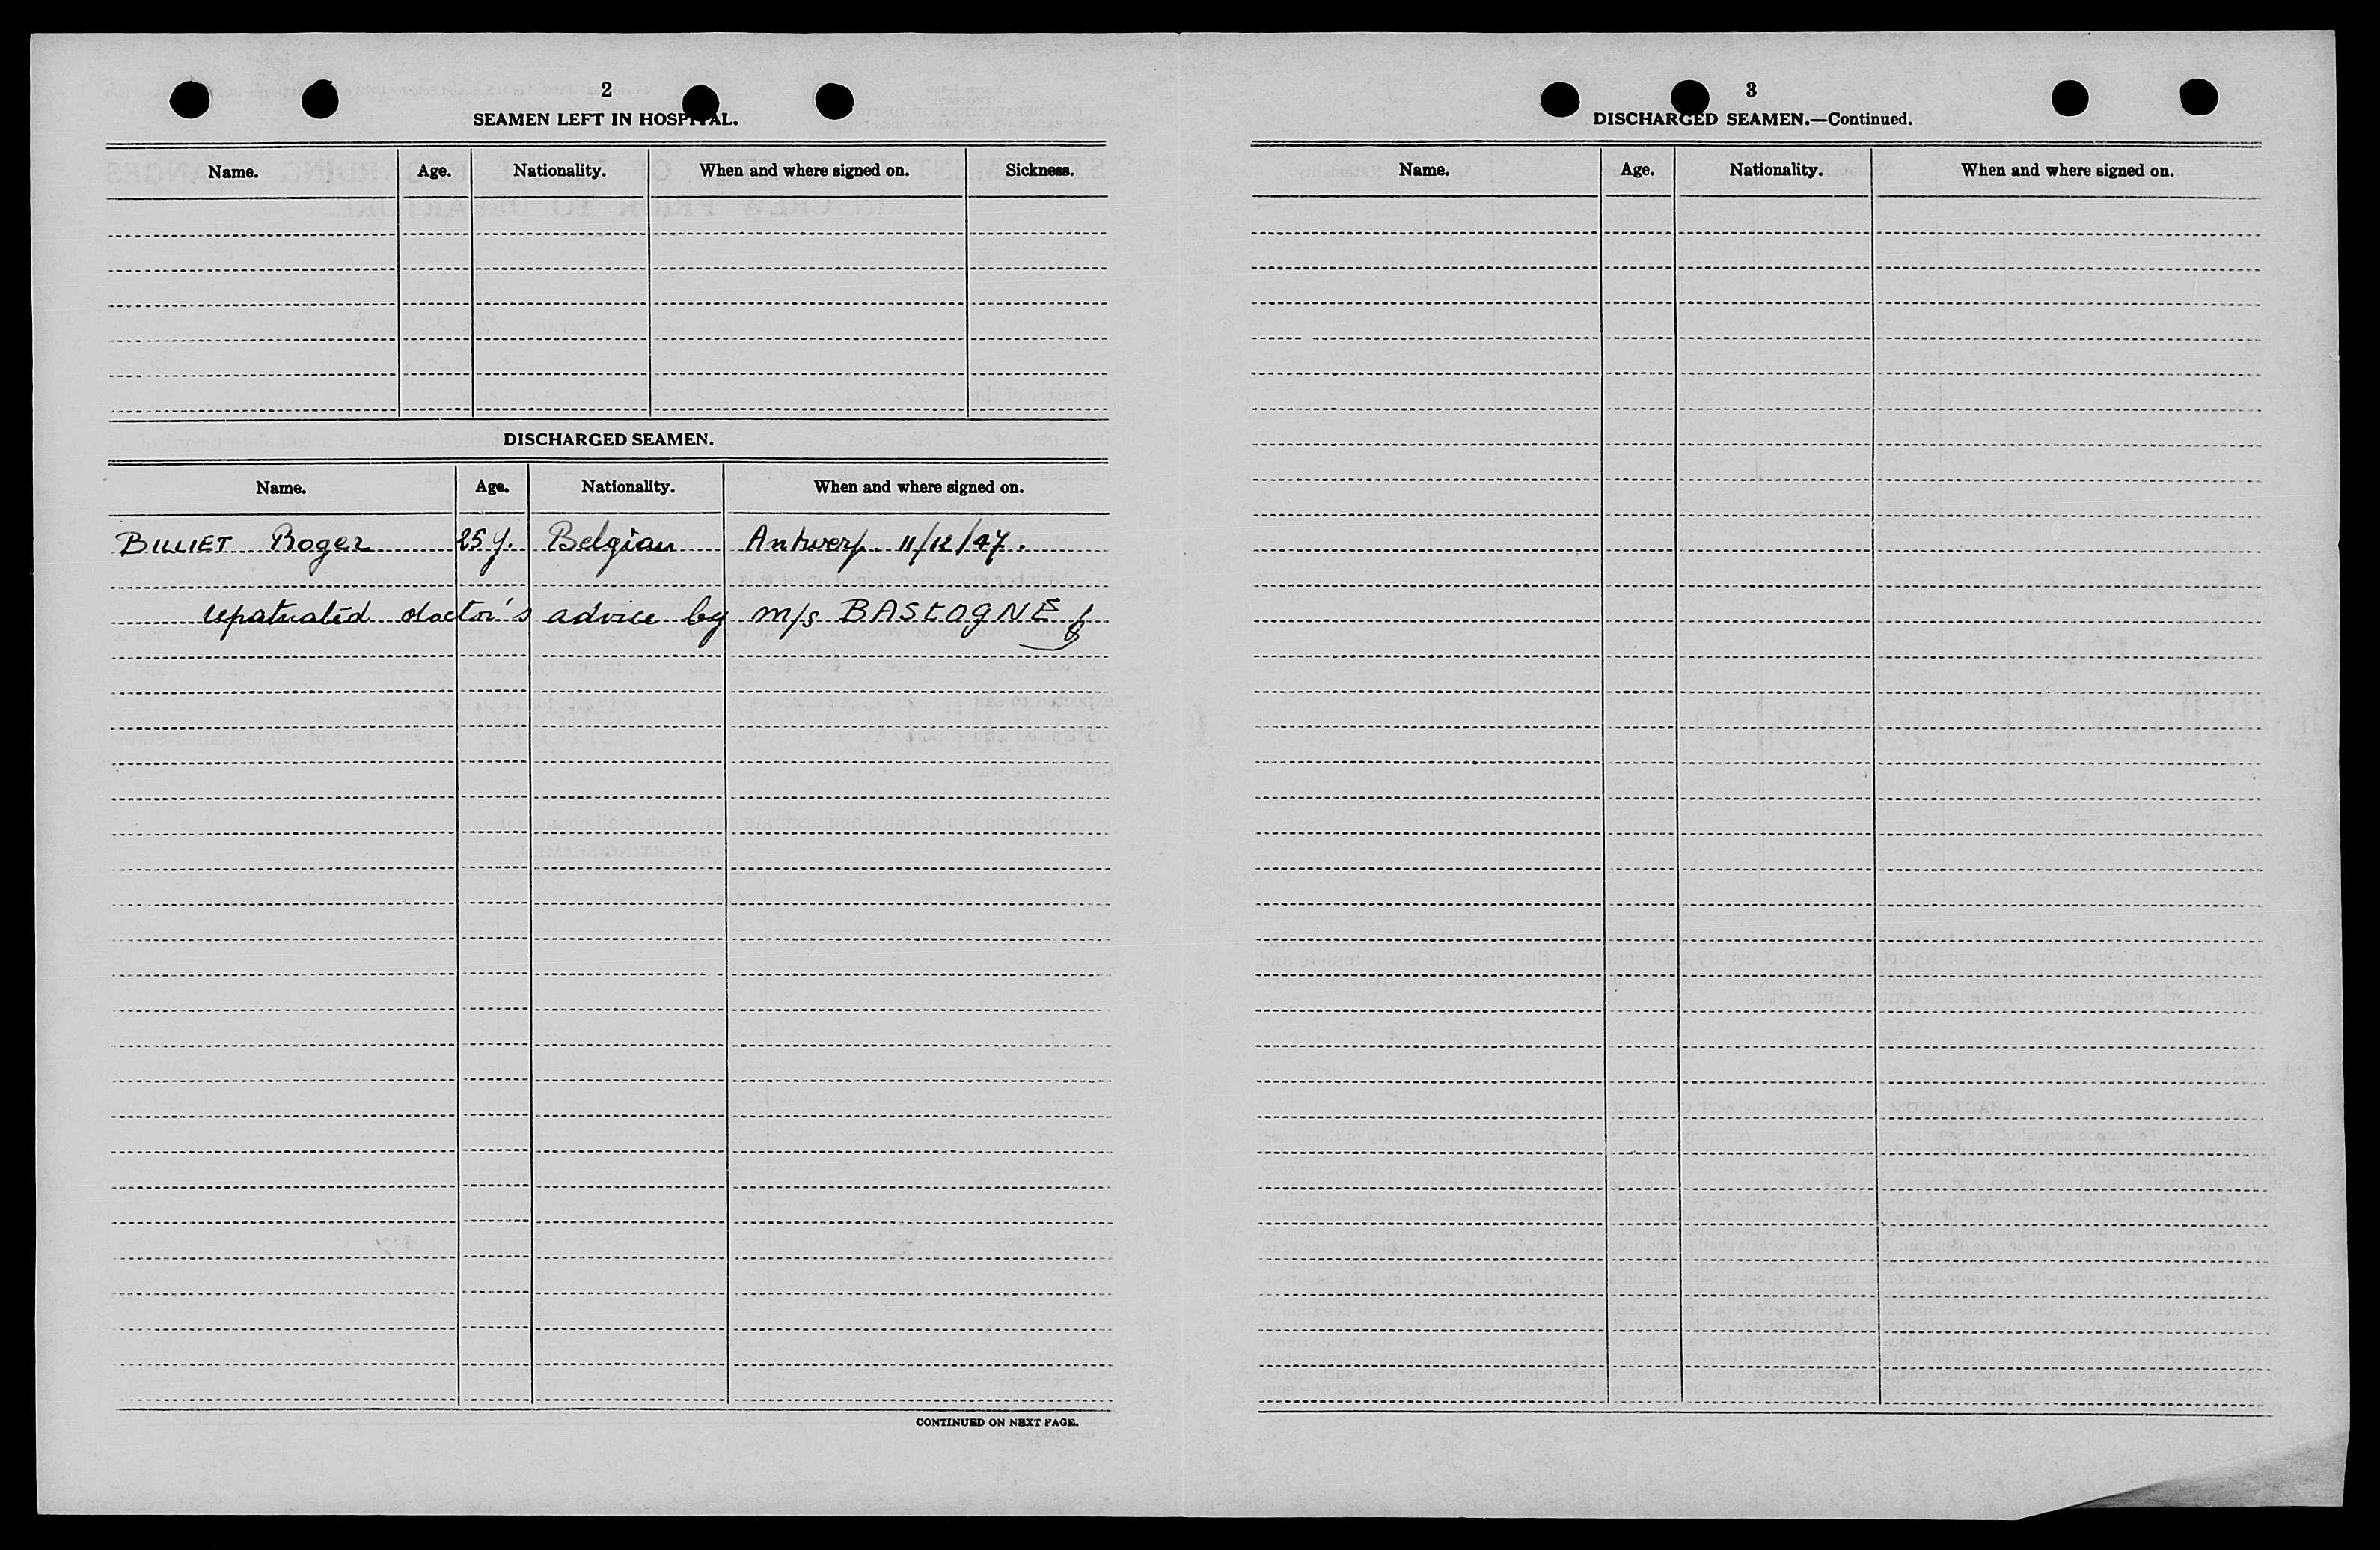 2
SEAMEN LEFT IN HOSPITAL.
Name. Age. Nationality. When and where signed on. Sickness.
DISCHARGED SEAMEN.
Name. Age. Nationality. When and where signed on.
BILLIET Roger 25 y. Belgian Antwerp. 11/12/47.
repatriated doctor's advice by m/s BASTOGNE
CONTINUED ON NEXT PAGE.
3
DISCHARGED SEAMEN.—Continued.
Name. Age. Nationality. When and where signed on.